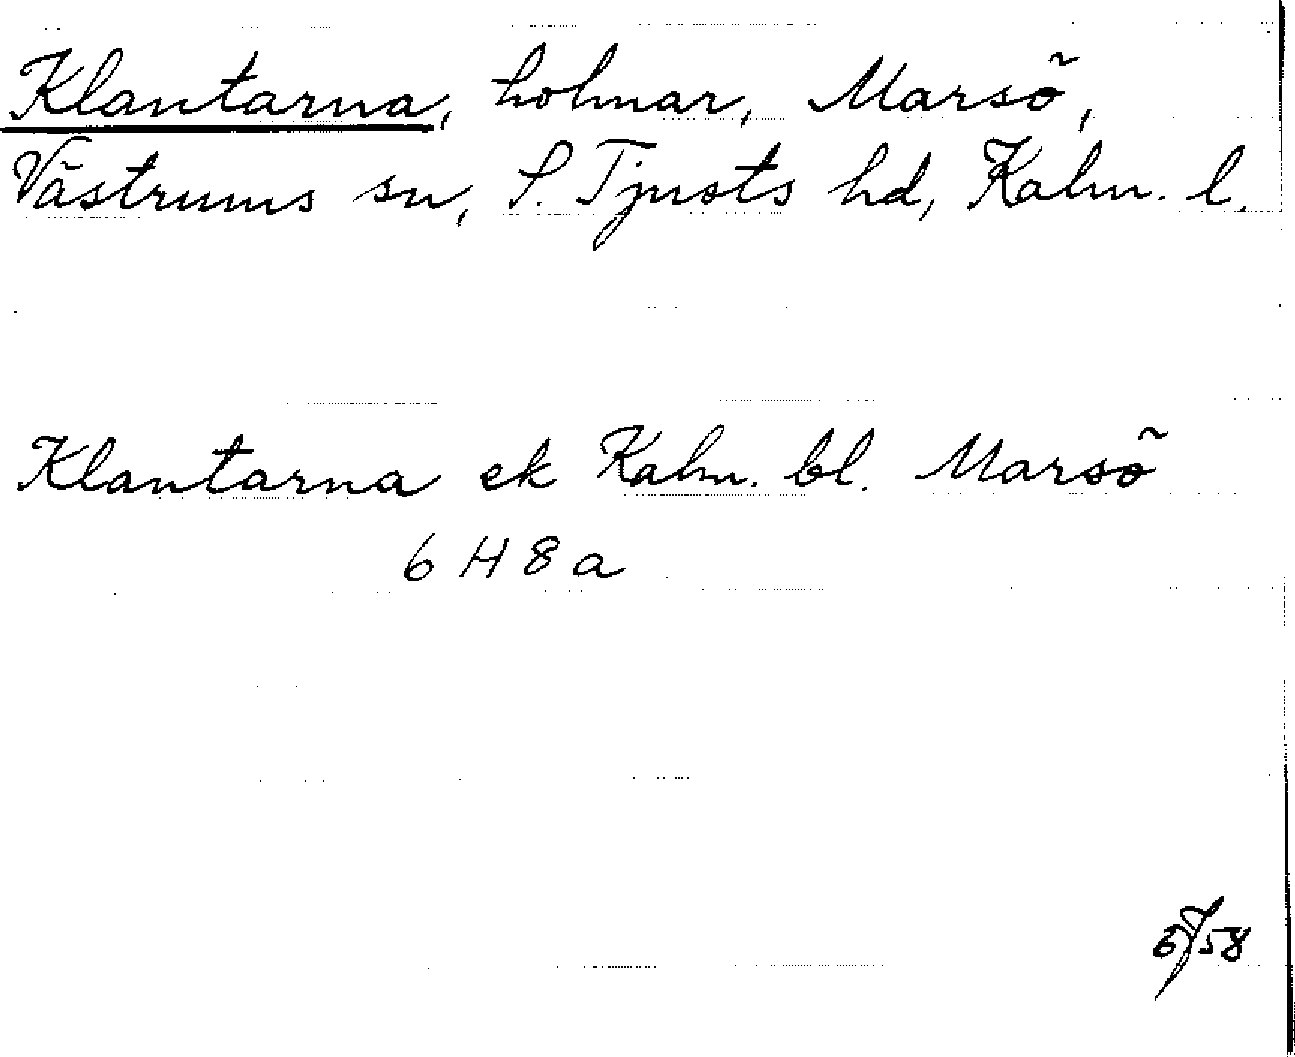 Klantarna, holmar, Marsö,
Västrums sn, S. Tjusts hd, Kalm. l.
Klantarna ek Kalm. bl. Marsö
6 H 8 a